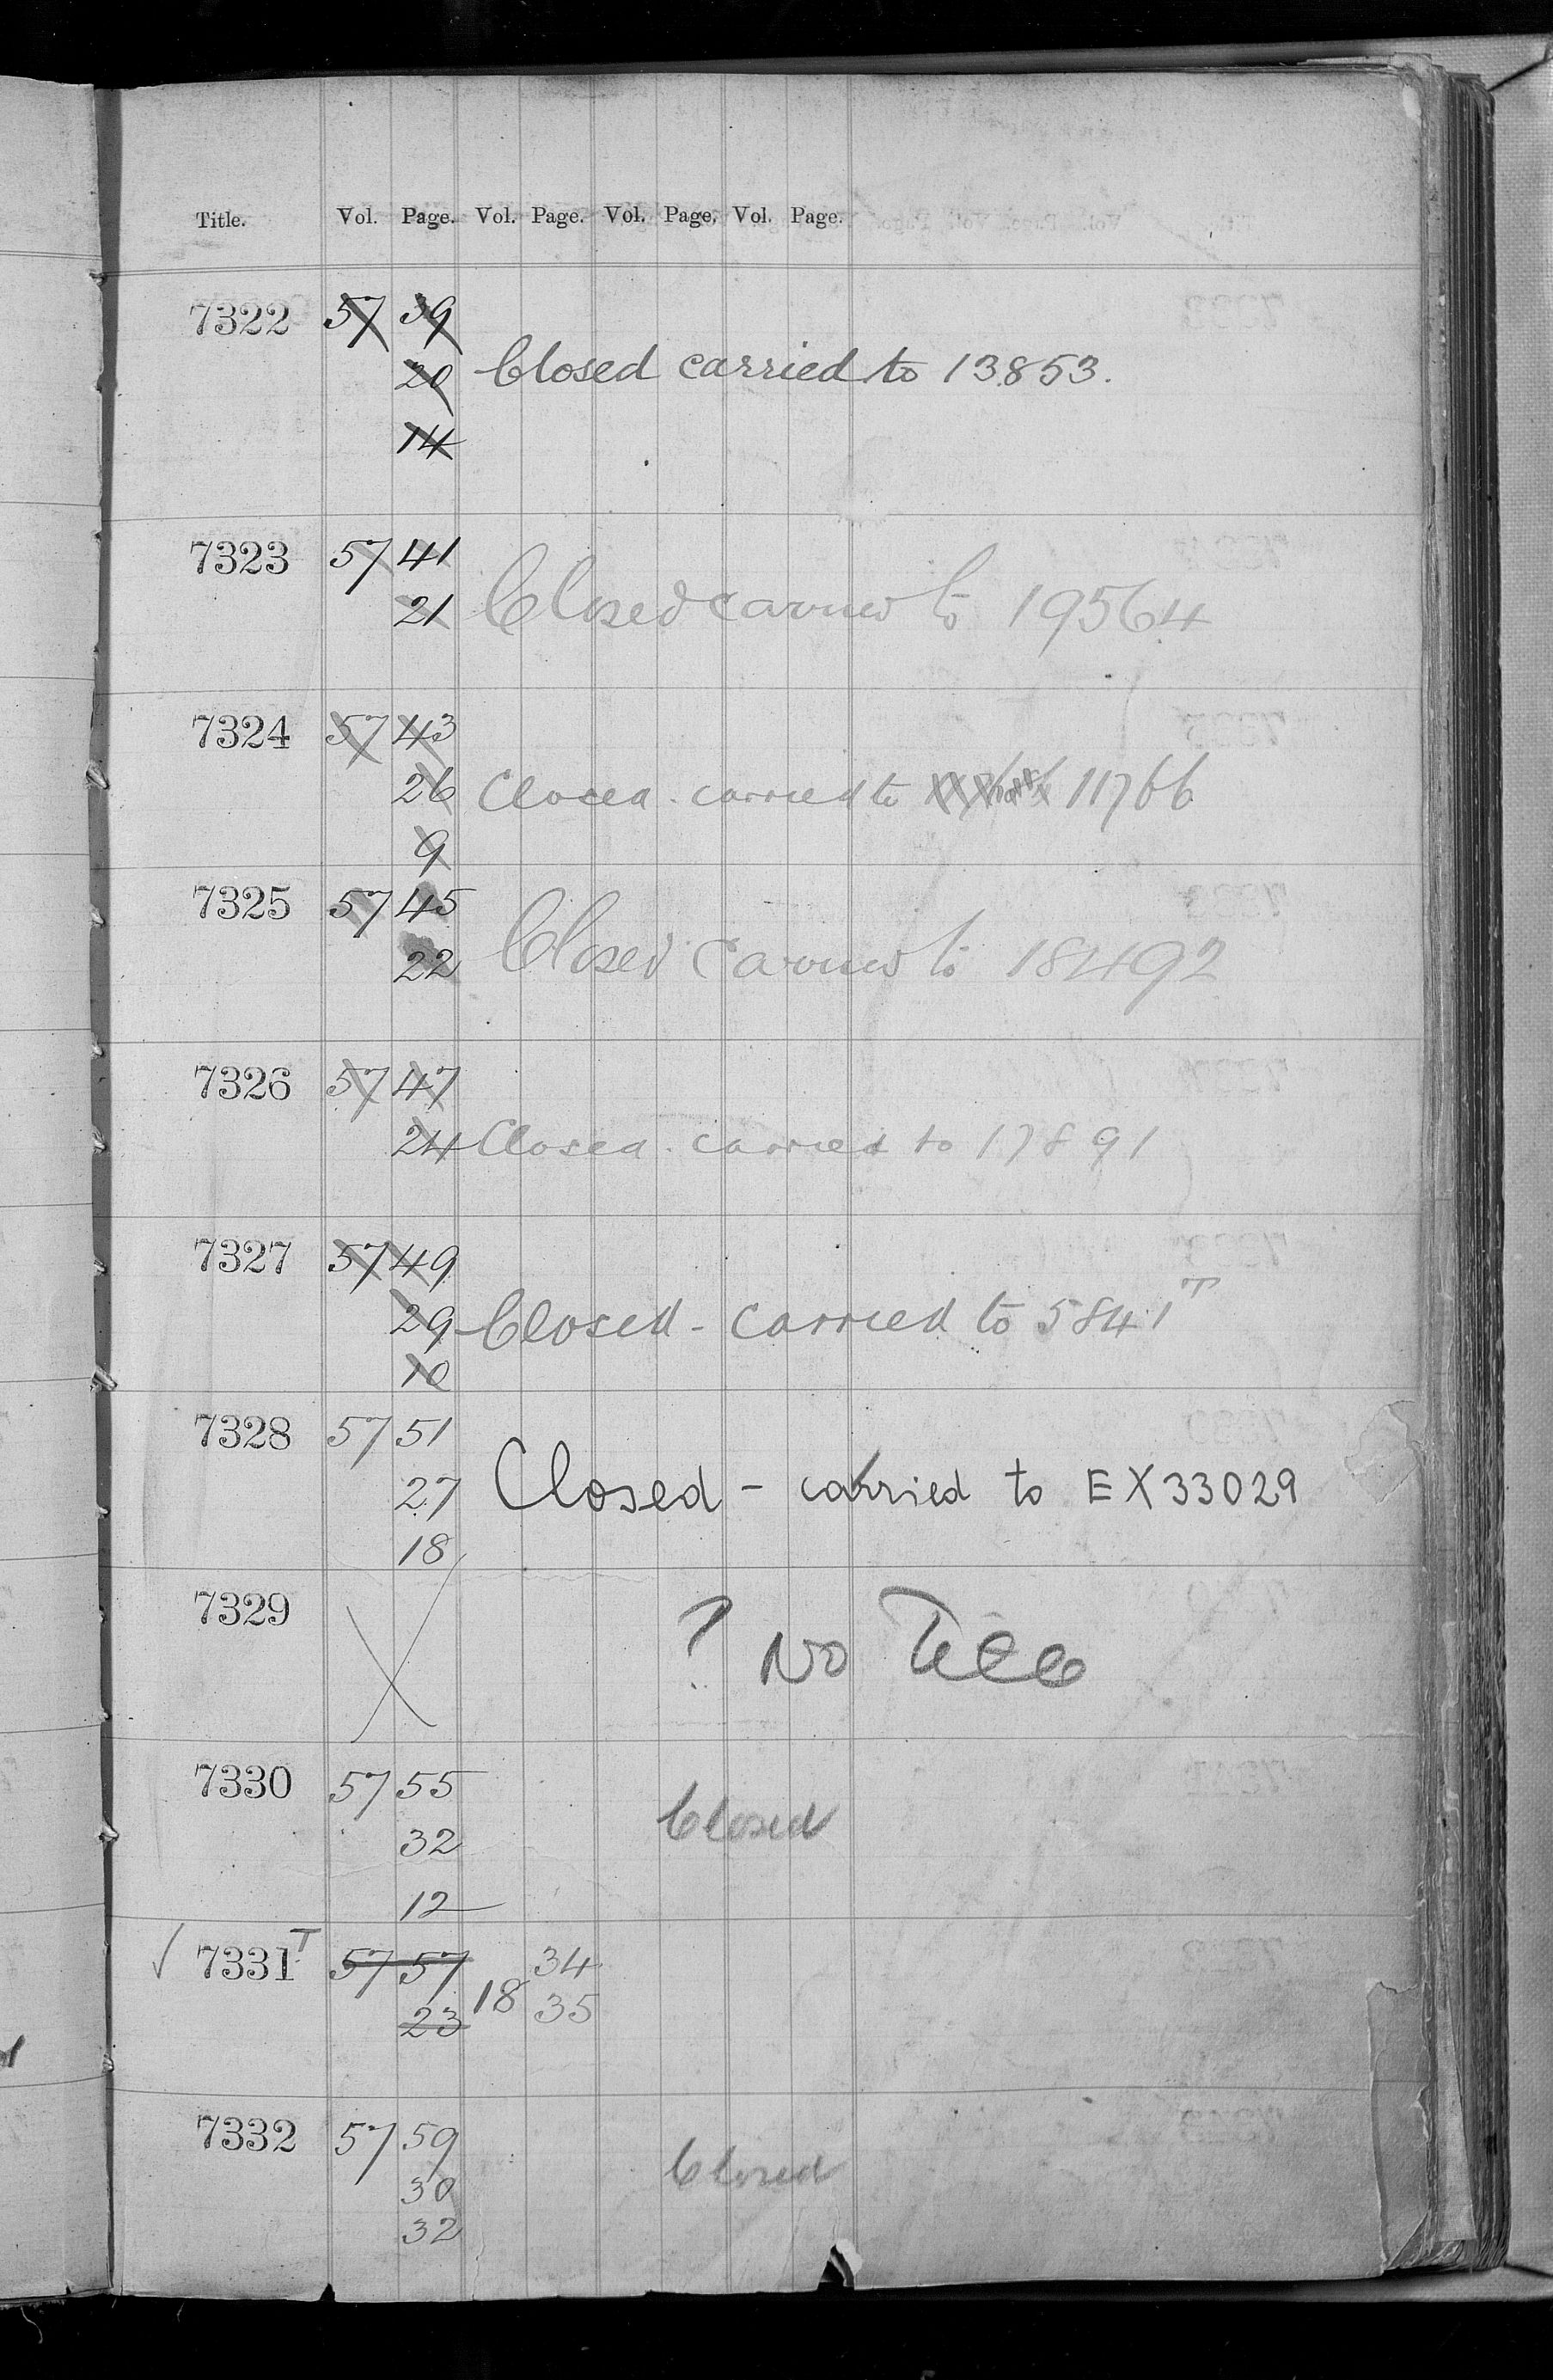 Title. Vol. Page. Vol. Page. Vol. Page. Vol. Page.
7322 57 39
20 Closed carried to 13853.
14
7323 57 41
21 Closed carried to 19564
7324 57 43
26 Closed. carried to 11766
9
7325 57 45
22 Closed carried to 18492
7326 57 47
24 Closed. carried to 17891
7327 57 49
29 Closed - carried to 5841T
10
7328 57 51
27 Closed - carried to EX33029
18
7329 X ? No Title
7330 57 55
Closed
32
12
✓ 7331T 57 57 34
23 18 35
7332 57 59
Closed
30
32